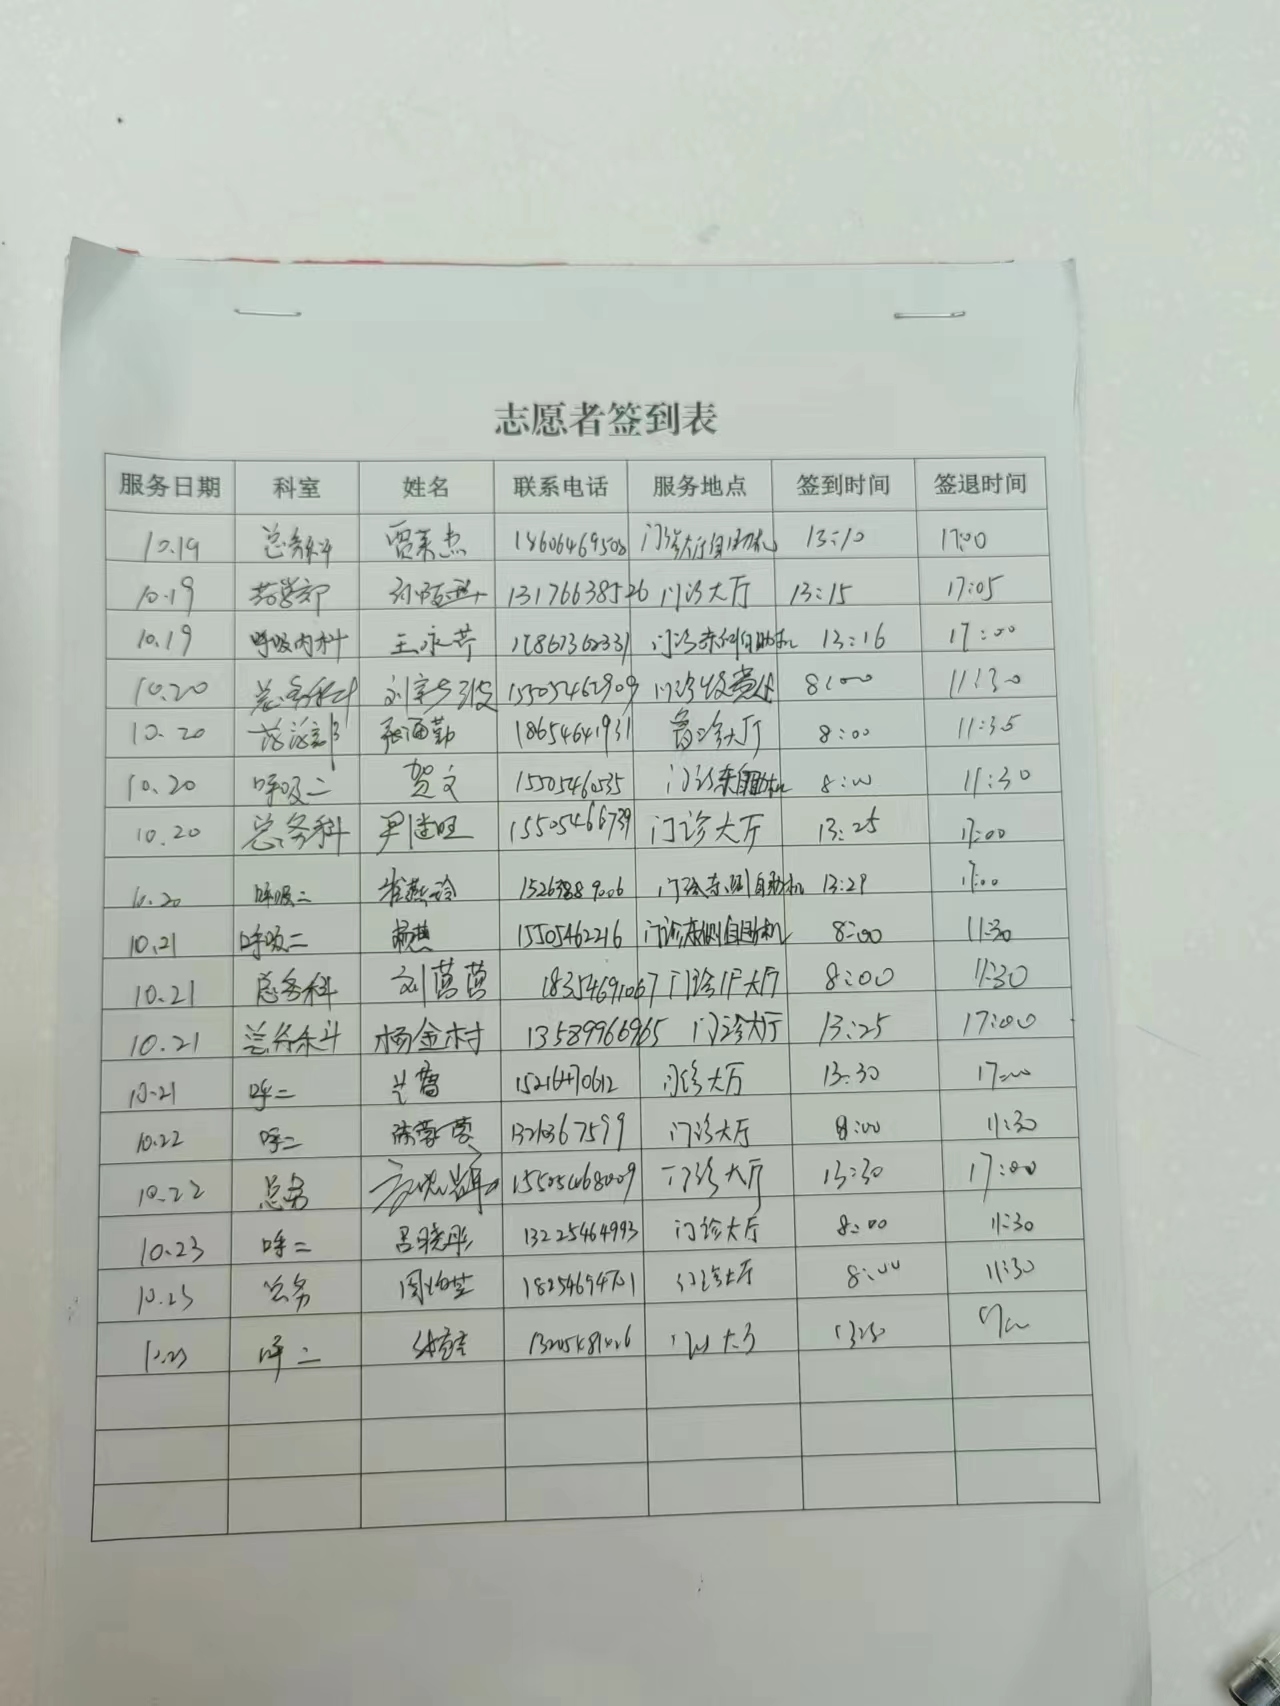 志愿者签到表
服务日期 科室 姓名 联系电话 服务地点 签到时间 签退时间
10.19 总务科 贾莱杰 18606469508 门诊大厅自助机 13:10 17:00
10.19 药学部 13176638526 门诊大厅 13:15 17:05
10.19 呼吸内科 王永芹 17861362331 门诊东侧自助机 13:16 17:00
10.20 总务科 15505462909 门诊收费处 8:00 11:30
10.20 18654641931 大厅 8:00 11:35
10.20 呼吸二 贺文 15505460535 门诊 8:00 11:30
10.20 总务科 15505466739 门诊大厅 13:25 17:00
10.20 呼吸二 门诊东侧自助机 13:29 17:00
10.21 呼吸二 15505462216 门诊东侧自助机 8:00 11:30
10.21 总务科 刘莒莒 18354691067 门诊大厅 8:00 11:30
10.21 总务科 杨金村 13589966965 门诊大厅 13:25 17:00
10.21 呼二 15216470612 门诊大厅 13:30 17:00
10.22 呼二 13210367599 门诊大厅 8:00 11:30
10.22 总务 15505468009 门诊大厅 13:30 17:00
10.23 呼二 吕晓彤 13225464993 门诊大厅 8:00 11:30
10.23 总务 18254694701 门诊大厅 8:00 11:30
10.23 呼二